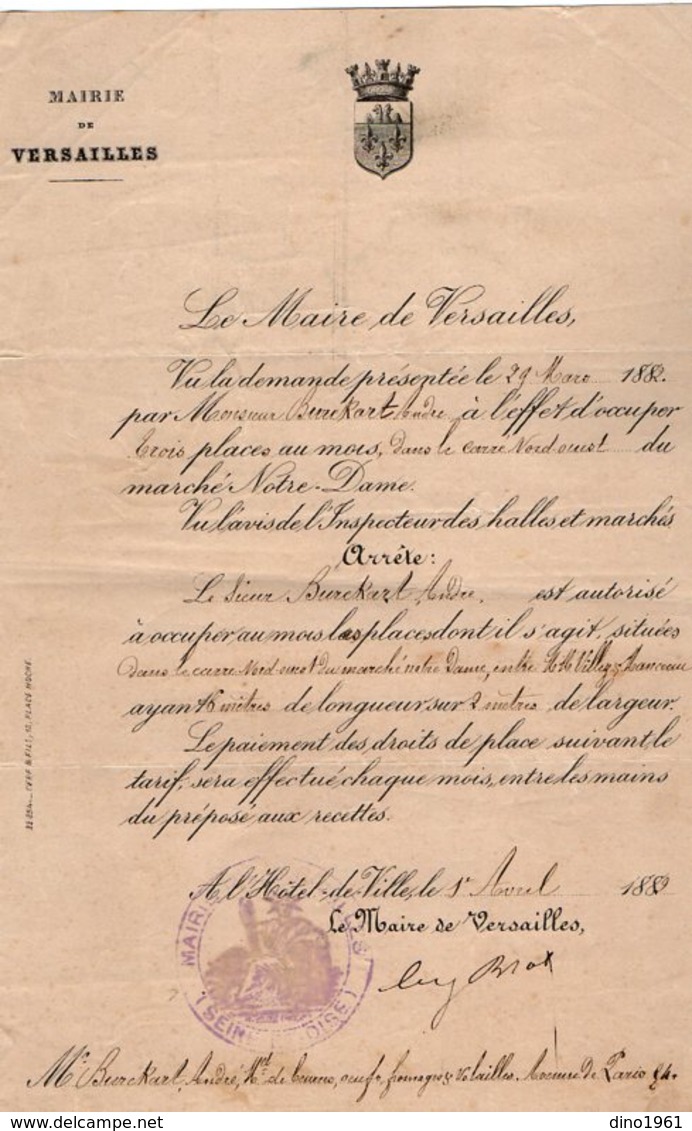 MAIRIE
DE
VERSAILLES
Le Maire de Versailles,
Vu la demande présentée le 29 Mars 1882.
par Monsieur Burckart, André, à l'effet d'occuper
trois places au mois, dans le carré Nord-ouest du
marché Notre-Dame.
Vu l'avis de l'Inspecteur des halles et marchés
Arrête:
Le Sieur Burckart, André, est autorisé
à occuper, au mois, les places dont il s'agit, situées
dans le carré Nord-ouest du marché notre Dame, entre
ayant 6 mètres de longueur sur 2 mètres de largeur.
Le paiement des droits de place suivant le
tarif, sera effectué chaque mois, entre les mains
du préposé aux recettes.
A l'Hôtel-de-Ville, le 1r Avril 1882
Le Maire de Versailles,
MAIRIE
(SEINE OISE)
Mr Burckart, André, Md de beurre, oeufs, fromages & volailles. Avenue de Paris 84.
CERF & FILS, 10, PLACE HOCHE
dino1961